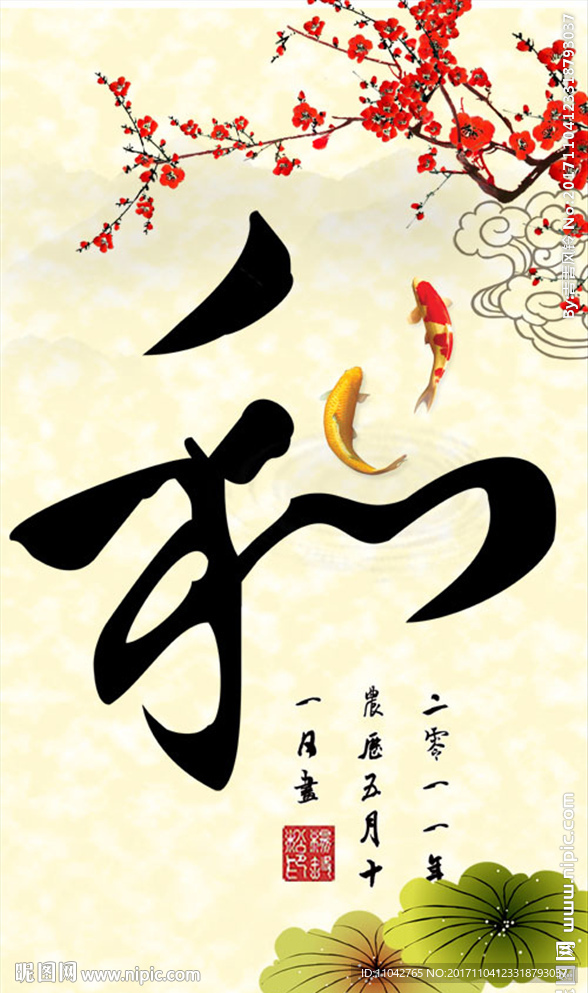 和
二零一一年
農歷五月十
一日畫
By:青青风铃 No.20171104123318793037
www.nipic.com
昵图网 www.nipic.com
ID:11042765 NO:20171104123318793037